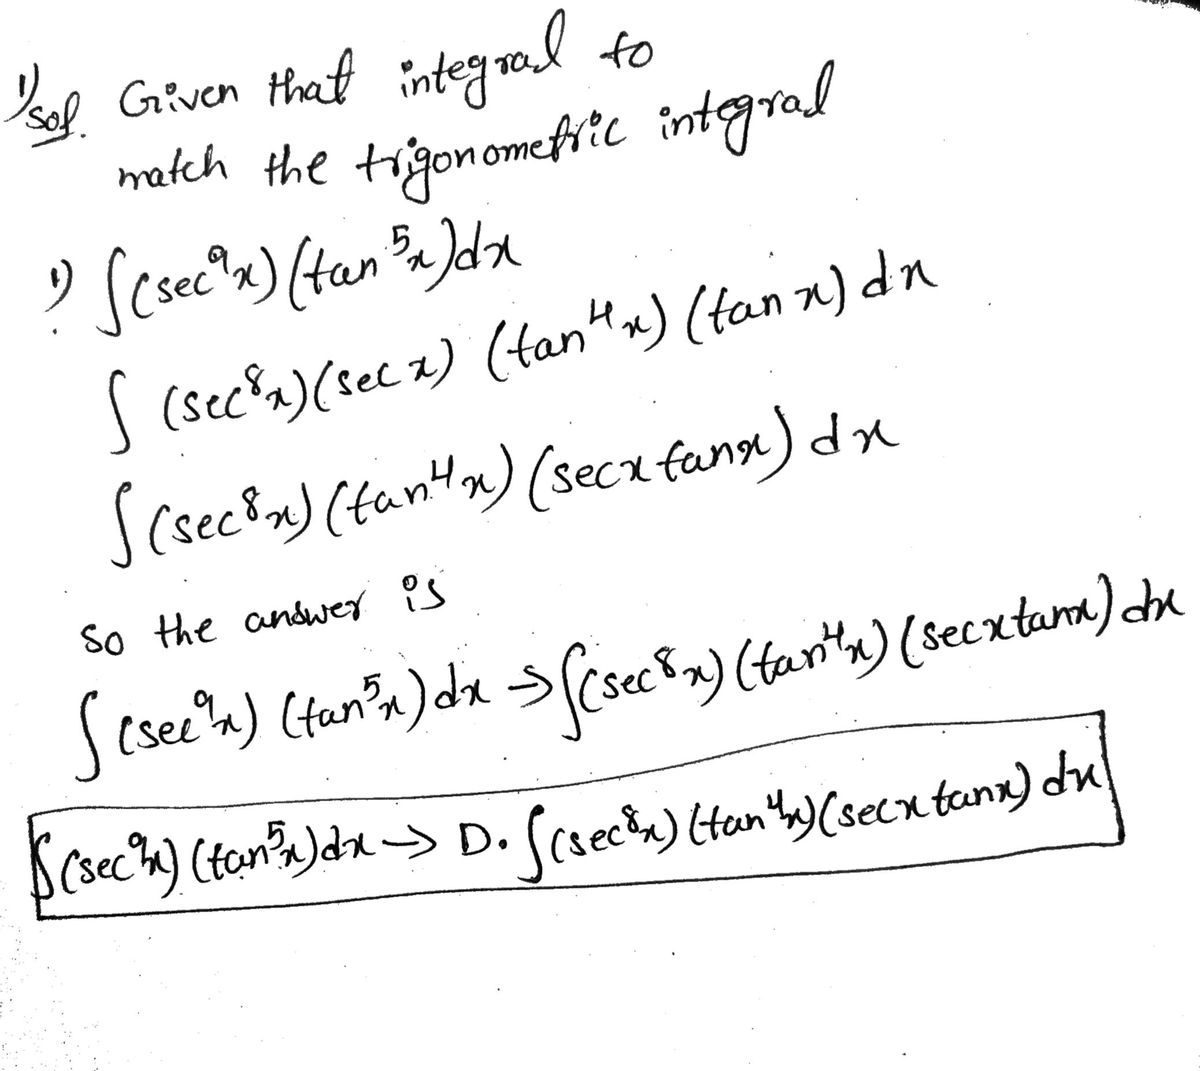 1) Sol. Given that integral to
match the trigonometric integral
1) ∫(sec⁹x)(tan⁵x)dx
∫ (sec⁸x)(sec x) (tan⁴x) (tan x) dx
∫(sec⁸x)(tan⁴x)(secx tanx) dx
So the answer is
∫(sec⁹x) (tan⁵x)dx → ∫(sec⁸x)(tan⁴x)(secxtanx)dx
∫(sec⁹x)(tan⁵x)dx → D. ∫(sec⁸x)(tan⁴x)(secx tanx) dx